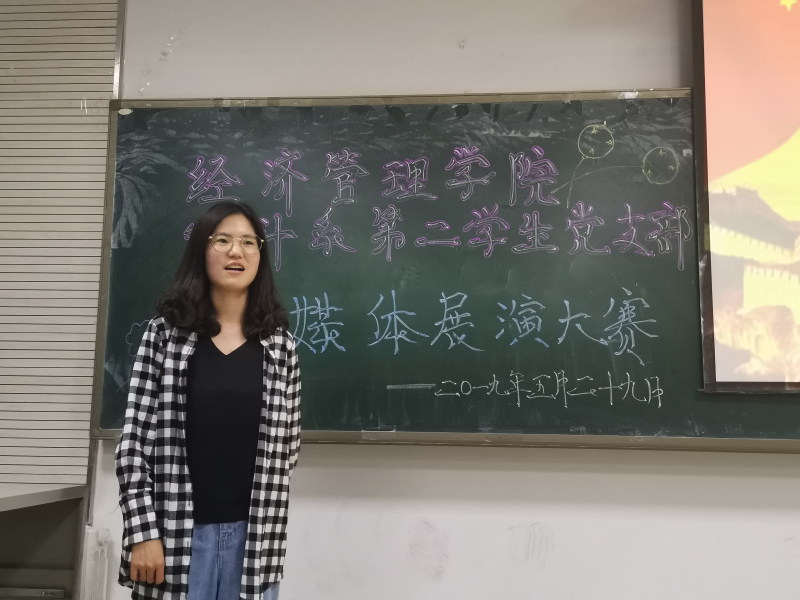 经济管理学院
计系第二学生党支部
媒体展演大赛
——二〇一九年五月二十九日